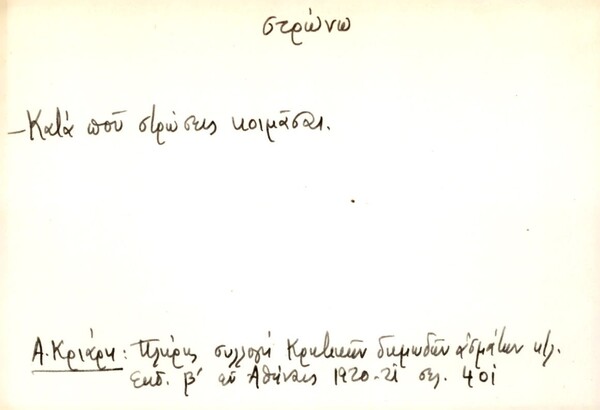 στρώνω
– Κατά ποῦ στρώσεις κοιμᾶσαι.
Α. Κριάρη: Πλήρης συλλογή Κρητικῶν δημωδῶν ᾀσμάτων κτλ.
Εκδ. β' ἐν Ἀθήναις 1920-21 σελ. 401